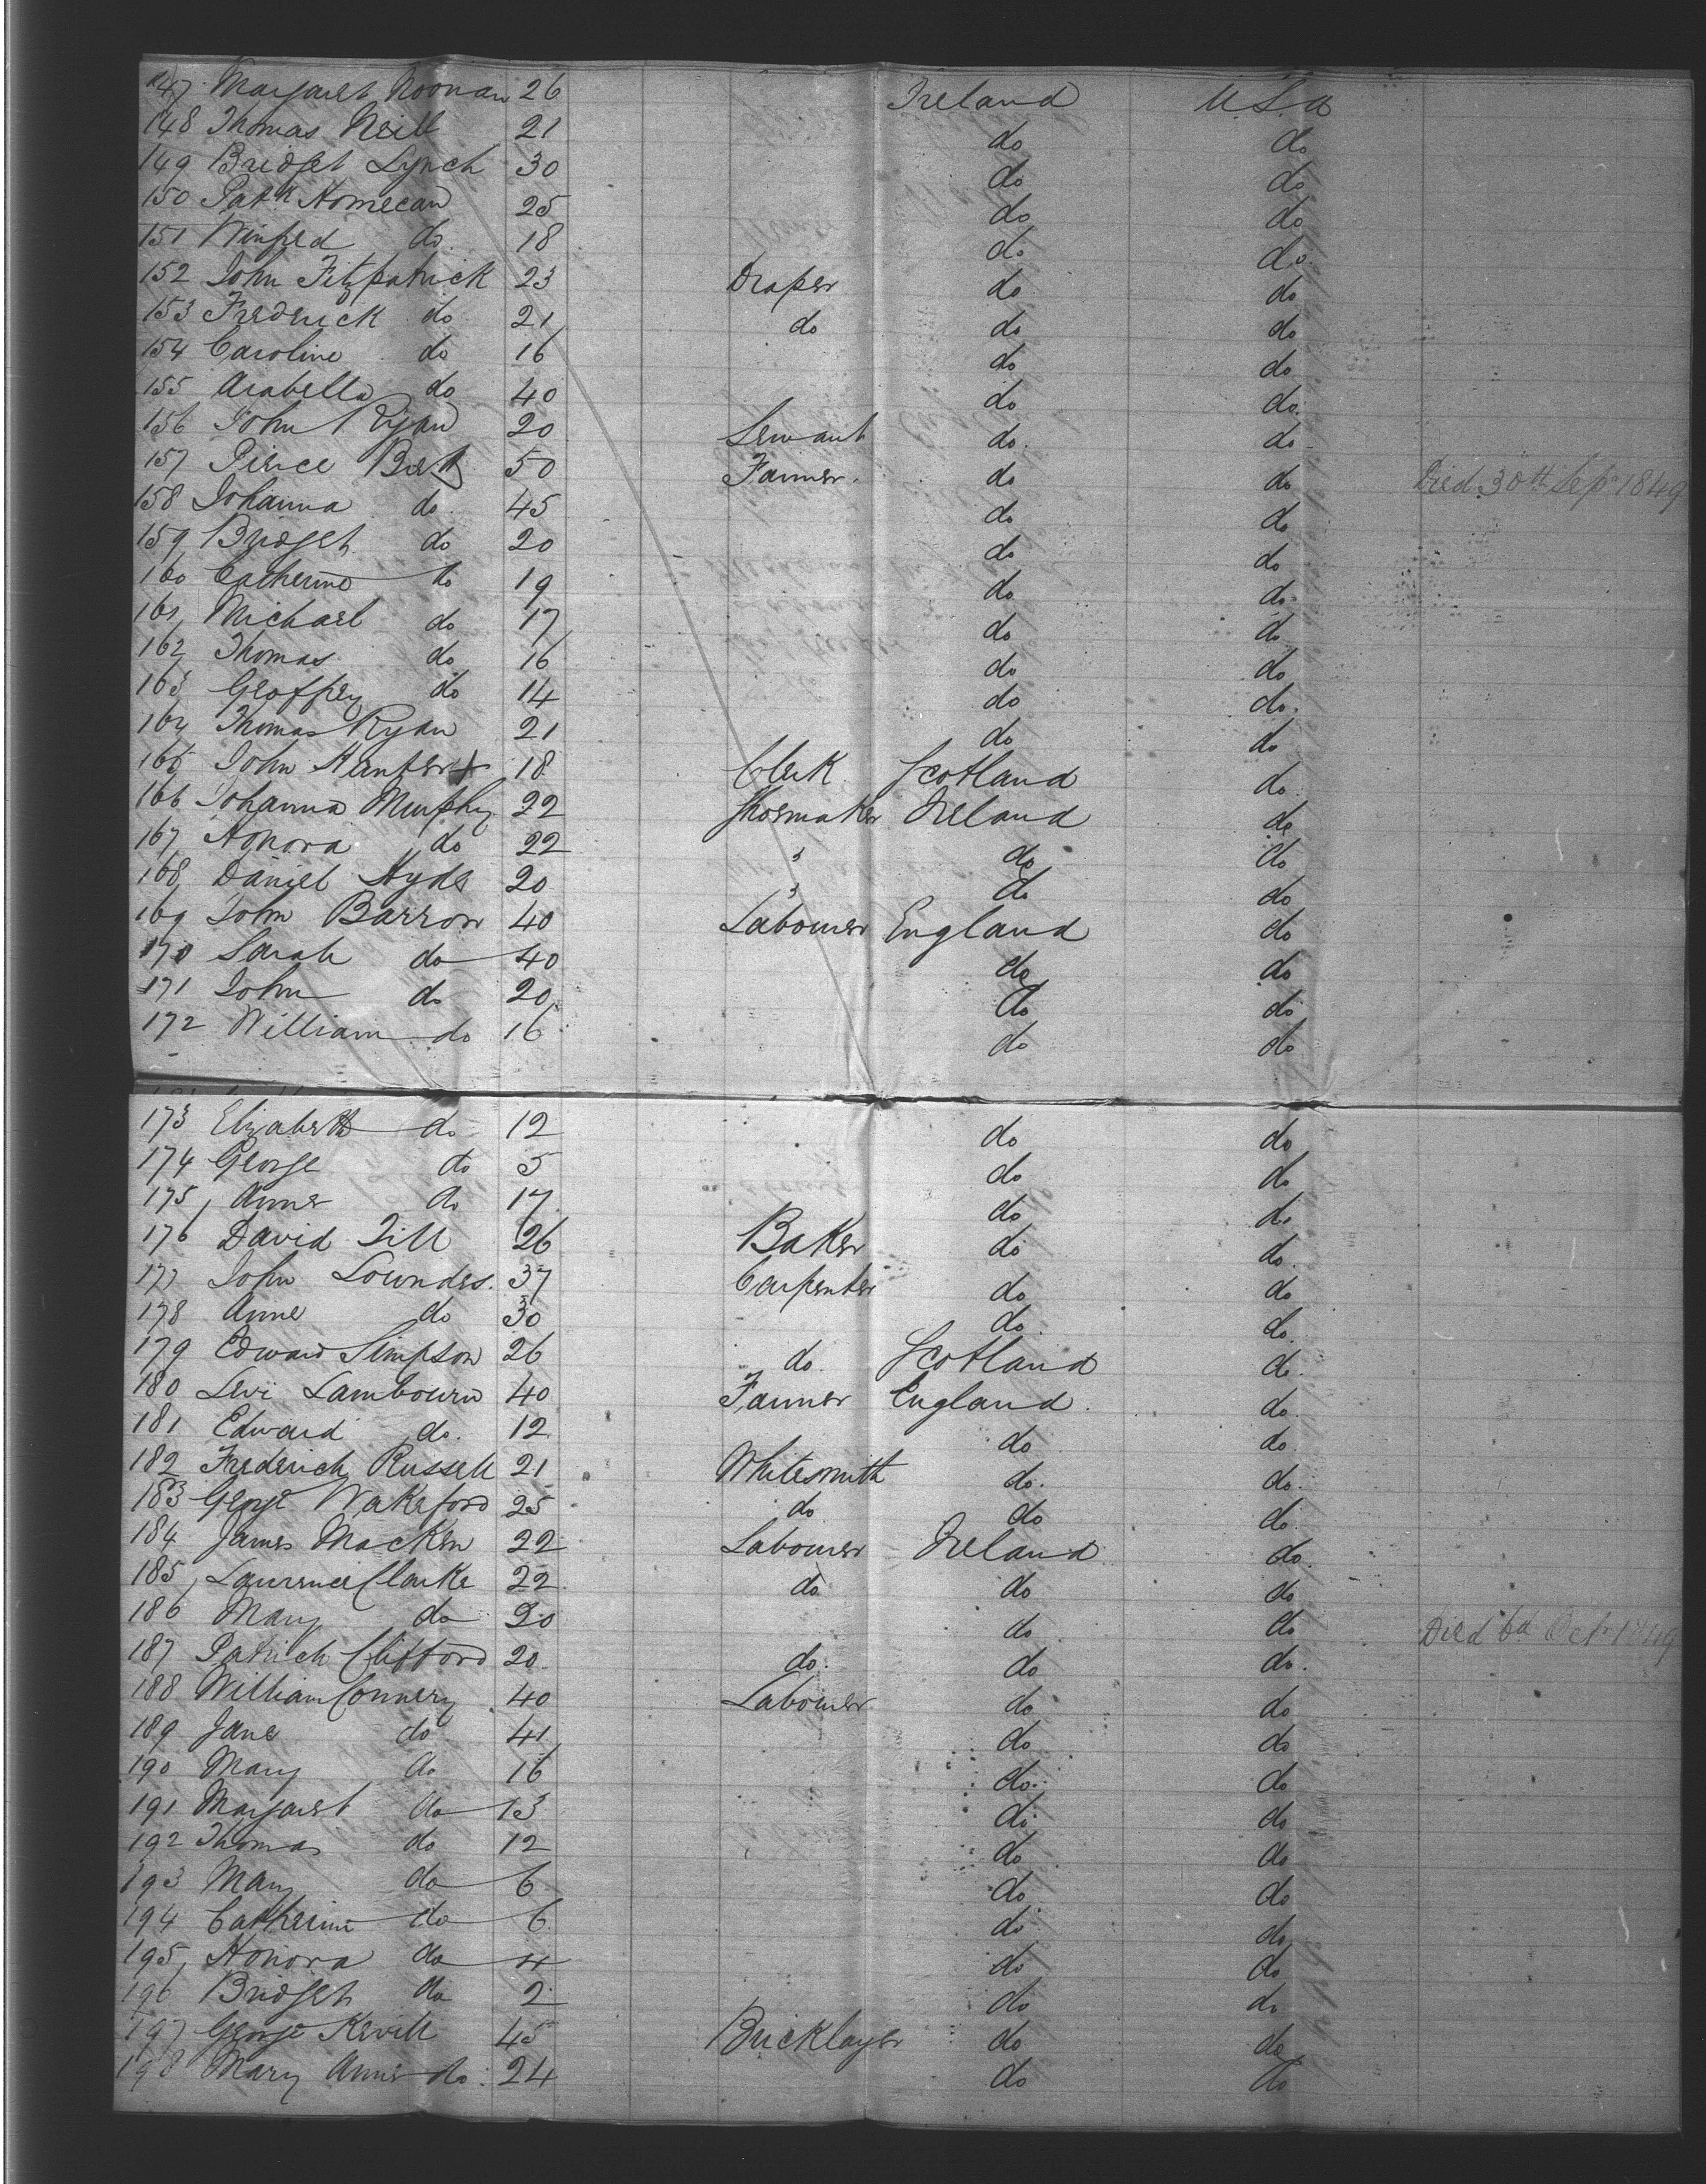 147 Margaret Noonan 26 Ireland U.S.a
148 Thomas Neill 21 do do
149 Bridget Lynch 30 do do
150 Patk 25 do do
151 Winfred do. 18 do do.
152 John Fitzpatrick 23 Draper do do
153 Frederick do 21 do do do
154 Caroline do 16 do do
155 Arabella do 40 do do.
156 John Ryan 20 Servant do. do
157 Pierce 50 Farmer. do do Died 30th Sepr 1849
158 Johanna do. 45 do do
159 Bridget do 20 do do
160 Catherine do 19 do do
161 Michael do 17 do do
162 Thomas do 16 do do
163 Geoffrey do 14 do do.
164 Thomas Ryan 21 do do
165 John Hunter 18 Clerk Scotland do.
166 Johanna Murphy 22 Shoemaker Ireland do
167 Honora do 22 do do
168 Daniel Hyde 20 do do
169 John Barrow 40 Labourer England do
170 Sarah do 40 do do
171 John do 20 do do
172 William do 16 do do
173 Elizabeth do 12 do do
174 George do 5 do do
175 Anne do 17 do do
176 David Till 26 Baker do do.
177 John Lowndes. 37 Carpenter do do
178 Anne do 30 do. do.
179 Edward Simpson 26 do. Scotland do.
180 Levi Lambourn 40 Farmer England. do.
181 Edward do. 12 do do.
182 Frederick Russell 21 Whitesmith do. do.
183 George Wakeford 25 do do do.
184 James Macken 22 Labourer Ireland do.
185 Laurence Clarke 22 do do do
186 Mary do 20 do do Died 6d Octr 1849
187 Patrick Clifford 20 do. do do.
188 William Connery 40 Labourer do do
189 Jane do 41 do do
190 Mary do 16 do. do
191 Margaret do 13 do do
192 Thomas do 12 do do
193 Mary do 6 do do
194 Catherine do 6 do do
195 Honora do 4 do do
196 Bridget do 2 do do
197 George Kevill 45 Bricklayer do do
198 Mary Anne do. 24 do do